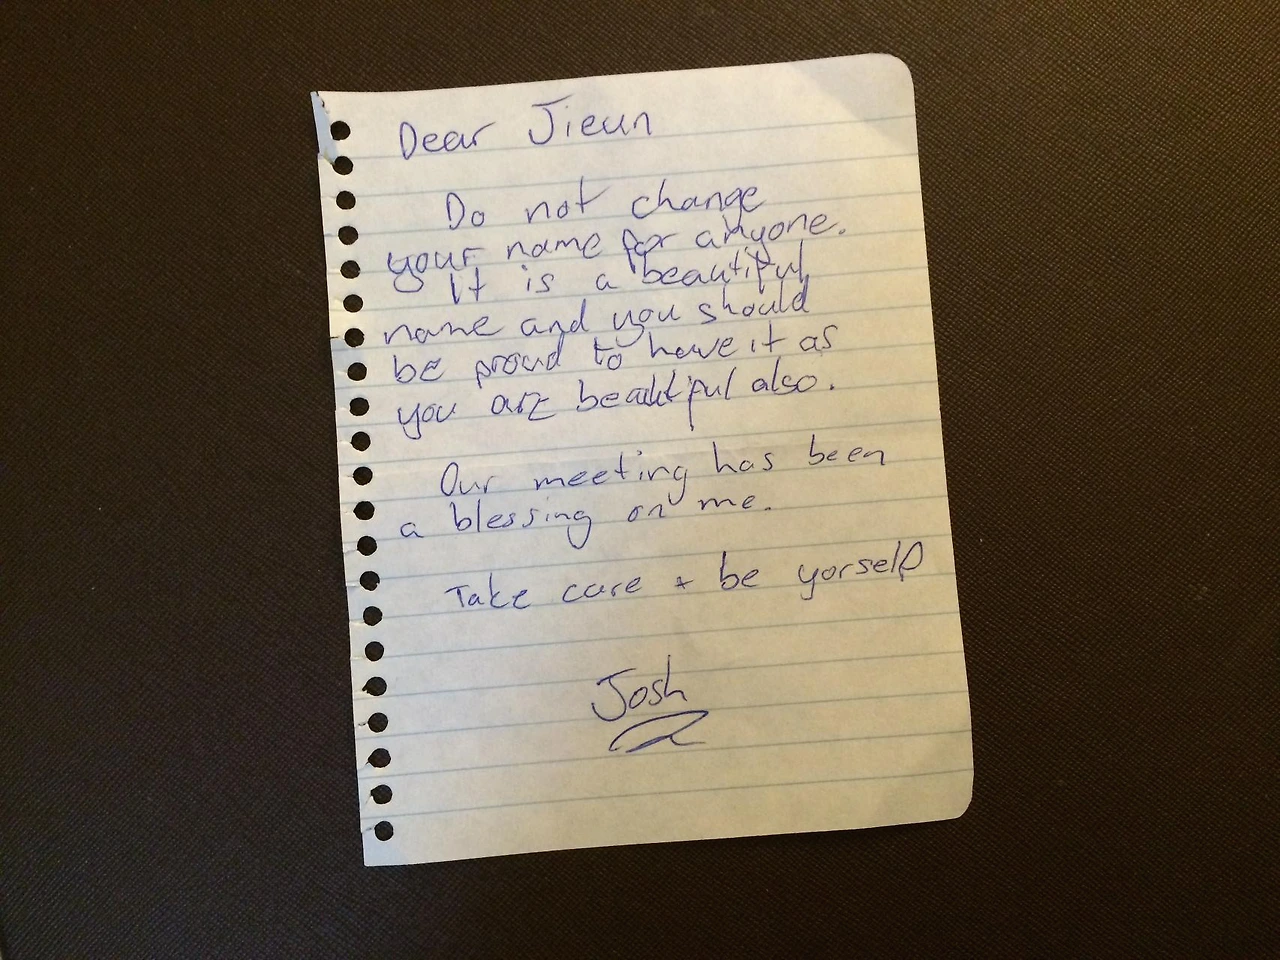 Dear Jieun
Do not change
your name for anyone.
It is a beautiful
name and you should
be proud to have it as
you are beautiful also.
Our meeting has been
a blessing on me.
Take care + be yorself
Josh